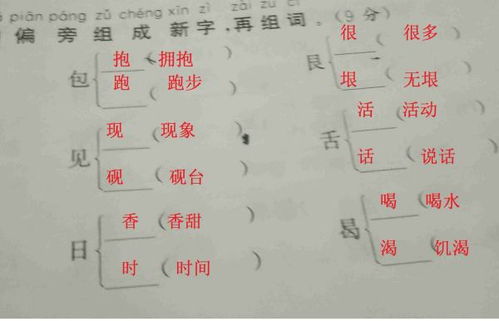 piān páng zǔ chéng xīn zì zài zǔ cí
偏旁组成新字,再组词.(9分)
包 抱 (拥抱)
跑 (跑步)
艮 很 (很多)
垠 (无垠)
见 现 (现象)
砚 (砚台)
舌 活 (活动)
话 (说话)
日 香 (香甜)
时 (时间)
曷 喝 (喝水)
渴 (饥渴)